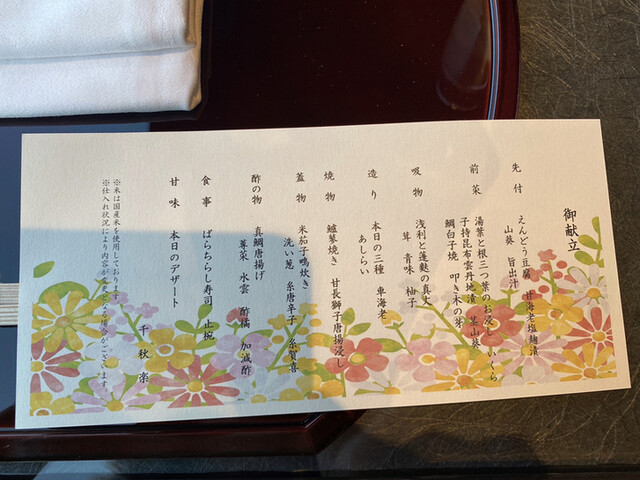 御献立
先付 えんどう豆腐 甘海老塩麹漬
山葵 旨出汁
前菜 湯葉と根三つ葉のお浸し いくら
子持昆布雲丹地漬 生山葵
鯛白子焼 叩き木の芽
吸物 浅利と蓮麩の真丈
茸 青味 柚子
造り 本日の三種 車海老
あしらい
焼物 鱸葱焼き 甘長獅子唐揚浸し
蓋物 米茄子鴫炊き
洗い葱 糸唐辛子 糸賀喜
酢の物 真鯛唐揚げ
蓴菜 水雲 酢橘 加減酢
食事 ばらちらし寿司 止椀
甘味 本日のデザート
※米は国産米を使用しております。
※仕入れ状況により内容が変わる場合がございます。
千秋楽